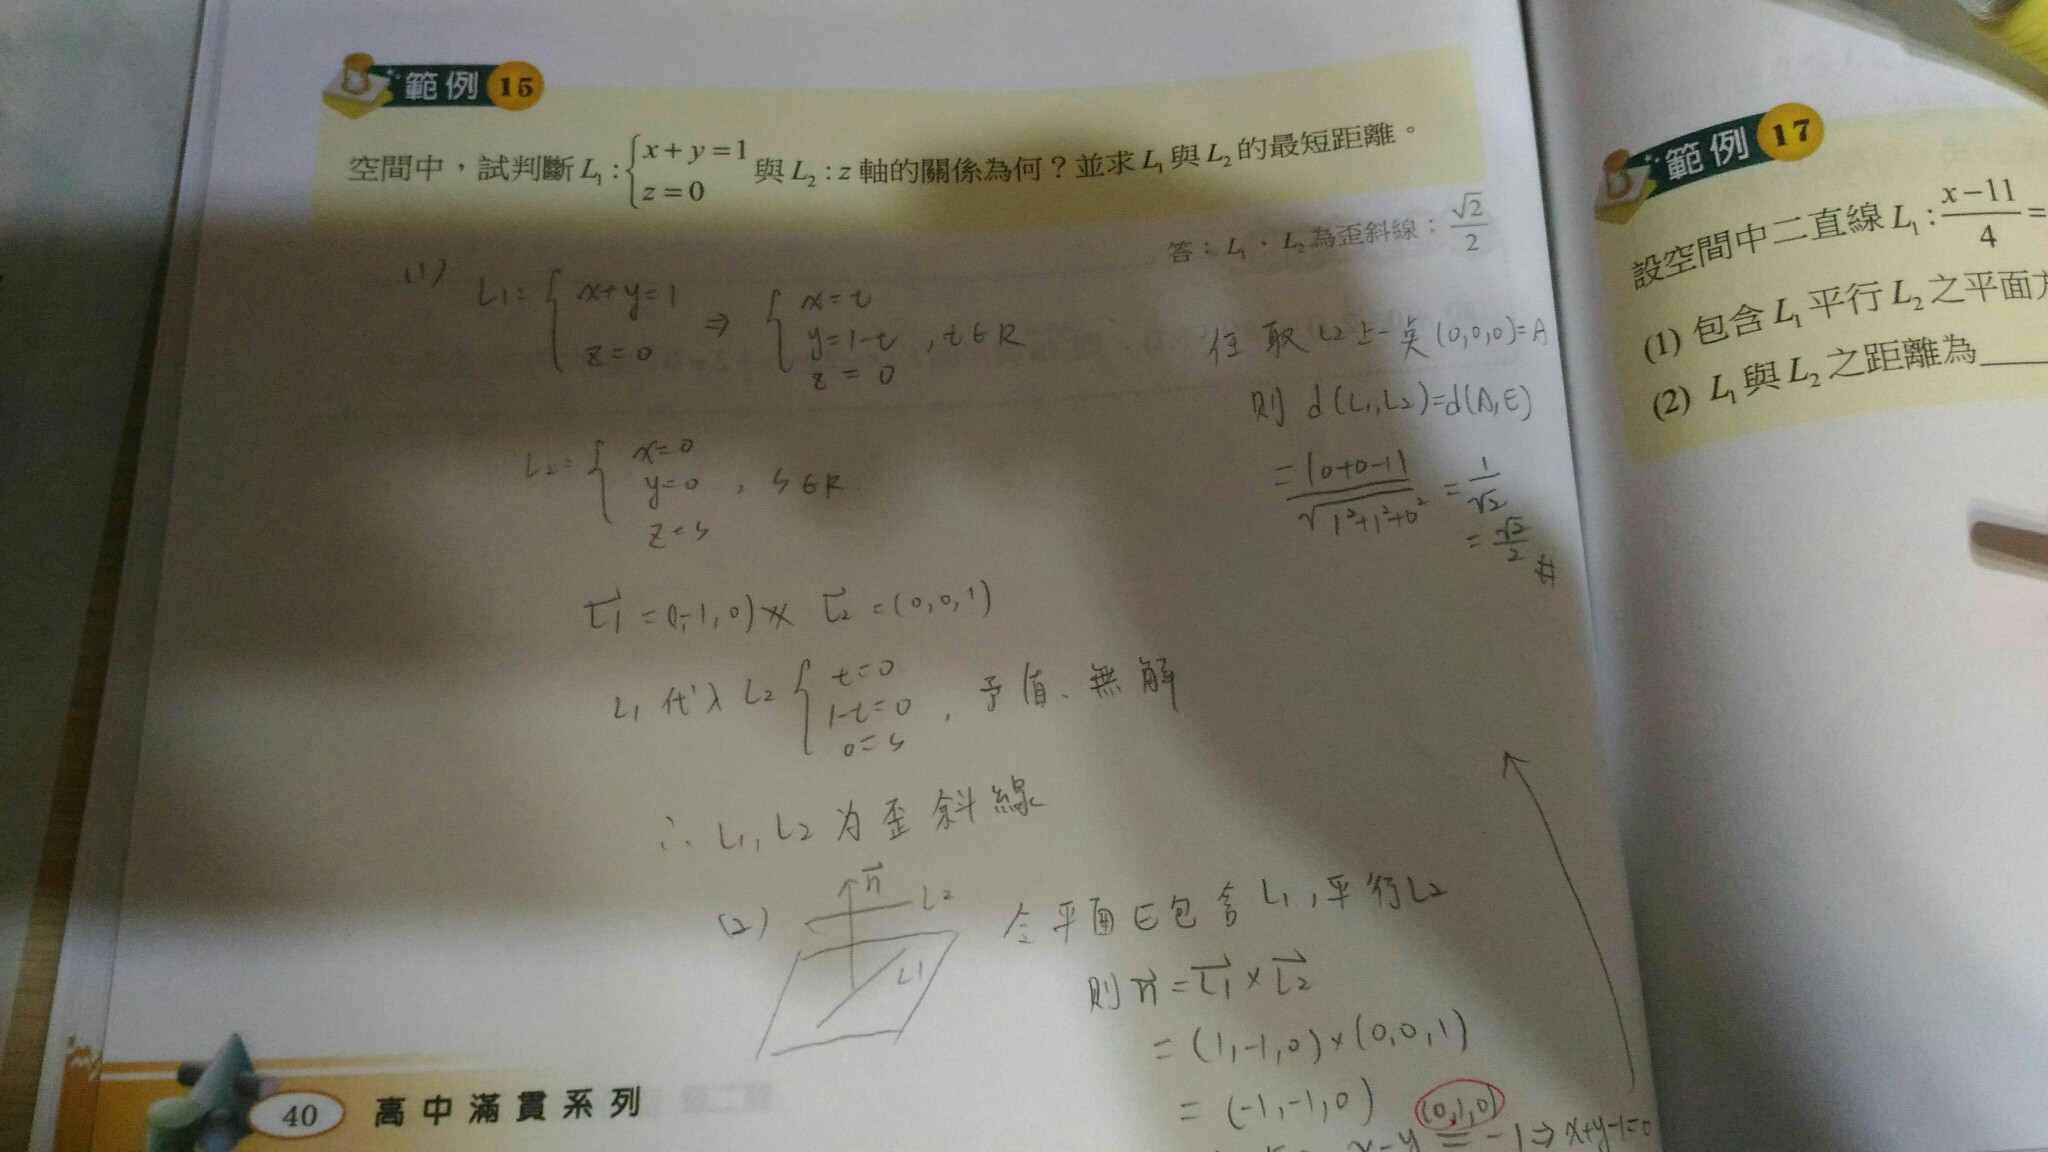 範例 15
空間中，試判斷 L₁ : { x + y = 1
z = 0 與 L₂ : z 軸的關係為何？並求 L₁ 與 L₂ 的最短距離。
答：L₁、L₂ 為歪斜線；√2/2
(1) L1 = { x+y=1
z=0
⇒ { x=t
y=1-t , t∈R
z=0
L2 = { x=0
y=0 , s∈R
z=s
L1 = (1,-1,0) ∦ L2 = (0,0,1)
L1 代入 L2 { t=0
1-t=0 ,
0=s
無解
∴ L1, L2 为歪斜線
(2) n L2
L1
令平面E包含L1,平行L2
則 n = L1 × L2
= (1,-1,0) × (0,0,1)
= (-1,-1,0) (0,1,0)
x-y = -1 ⇒ x+y-1=0
任取 L2 上一點 (0,0,0)=A
則 d(L1,L2)=d(A,E)
= |0+0-1| / √1²+1²+0² = 1/√2
= √2/2 #
40 高中滿貫系列
範例 17
設空間中二直線 L₁ : x-11/4 =
(1) 包含 L₁ 平行 L₂ 之平面方
(2) L₁ 與 L₂ 之距離為